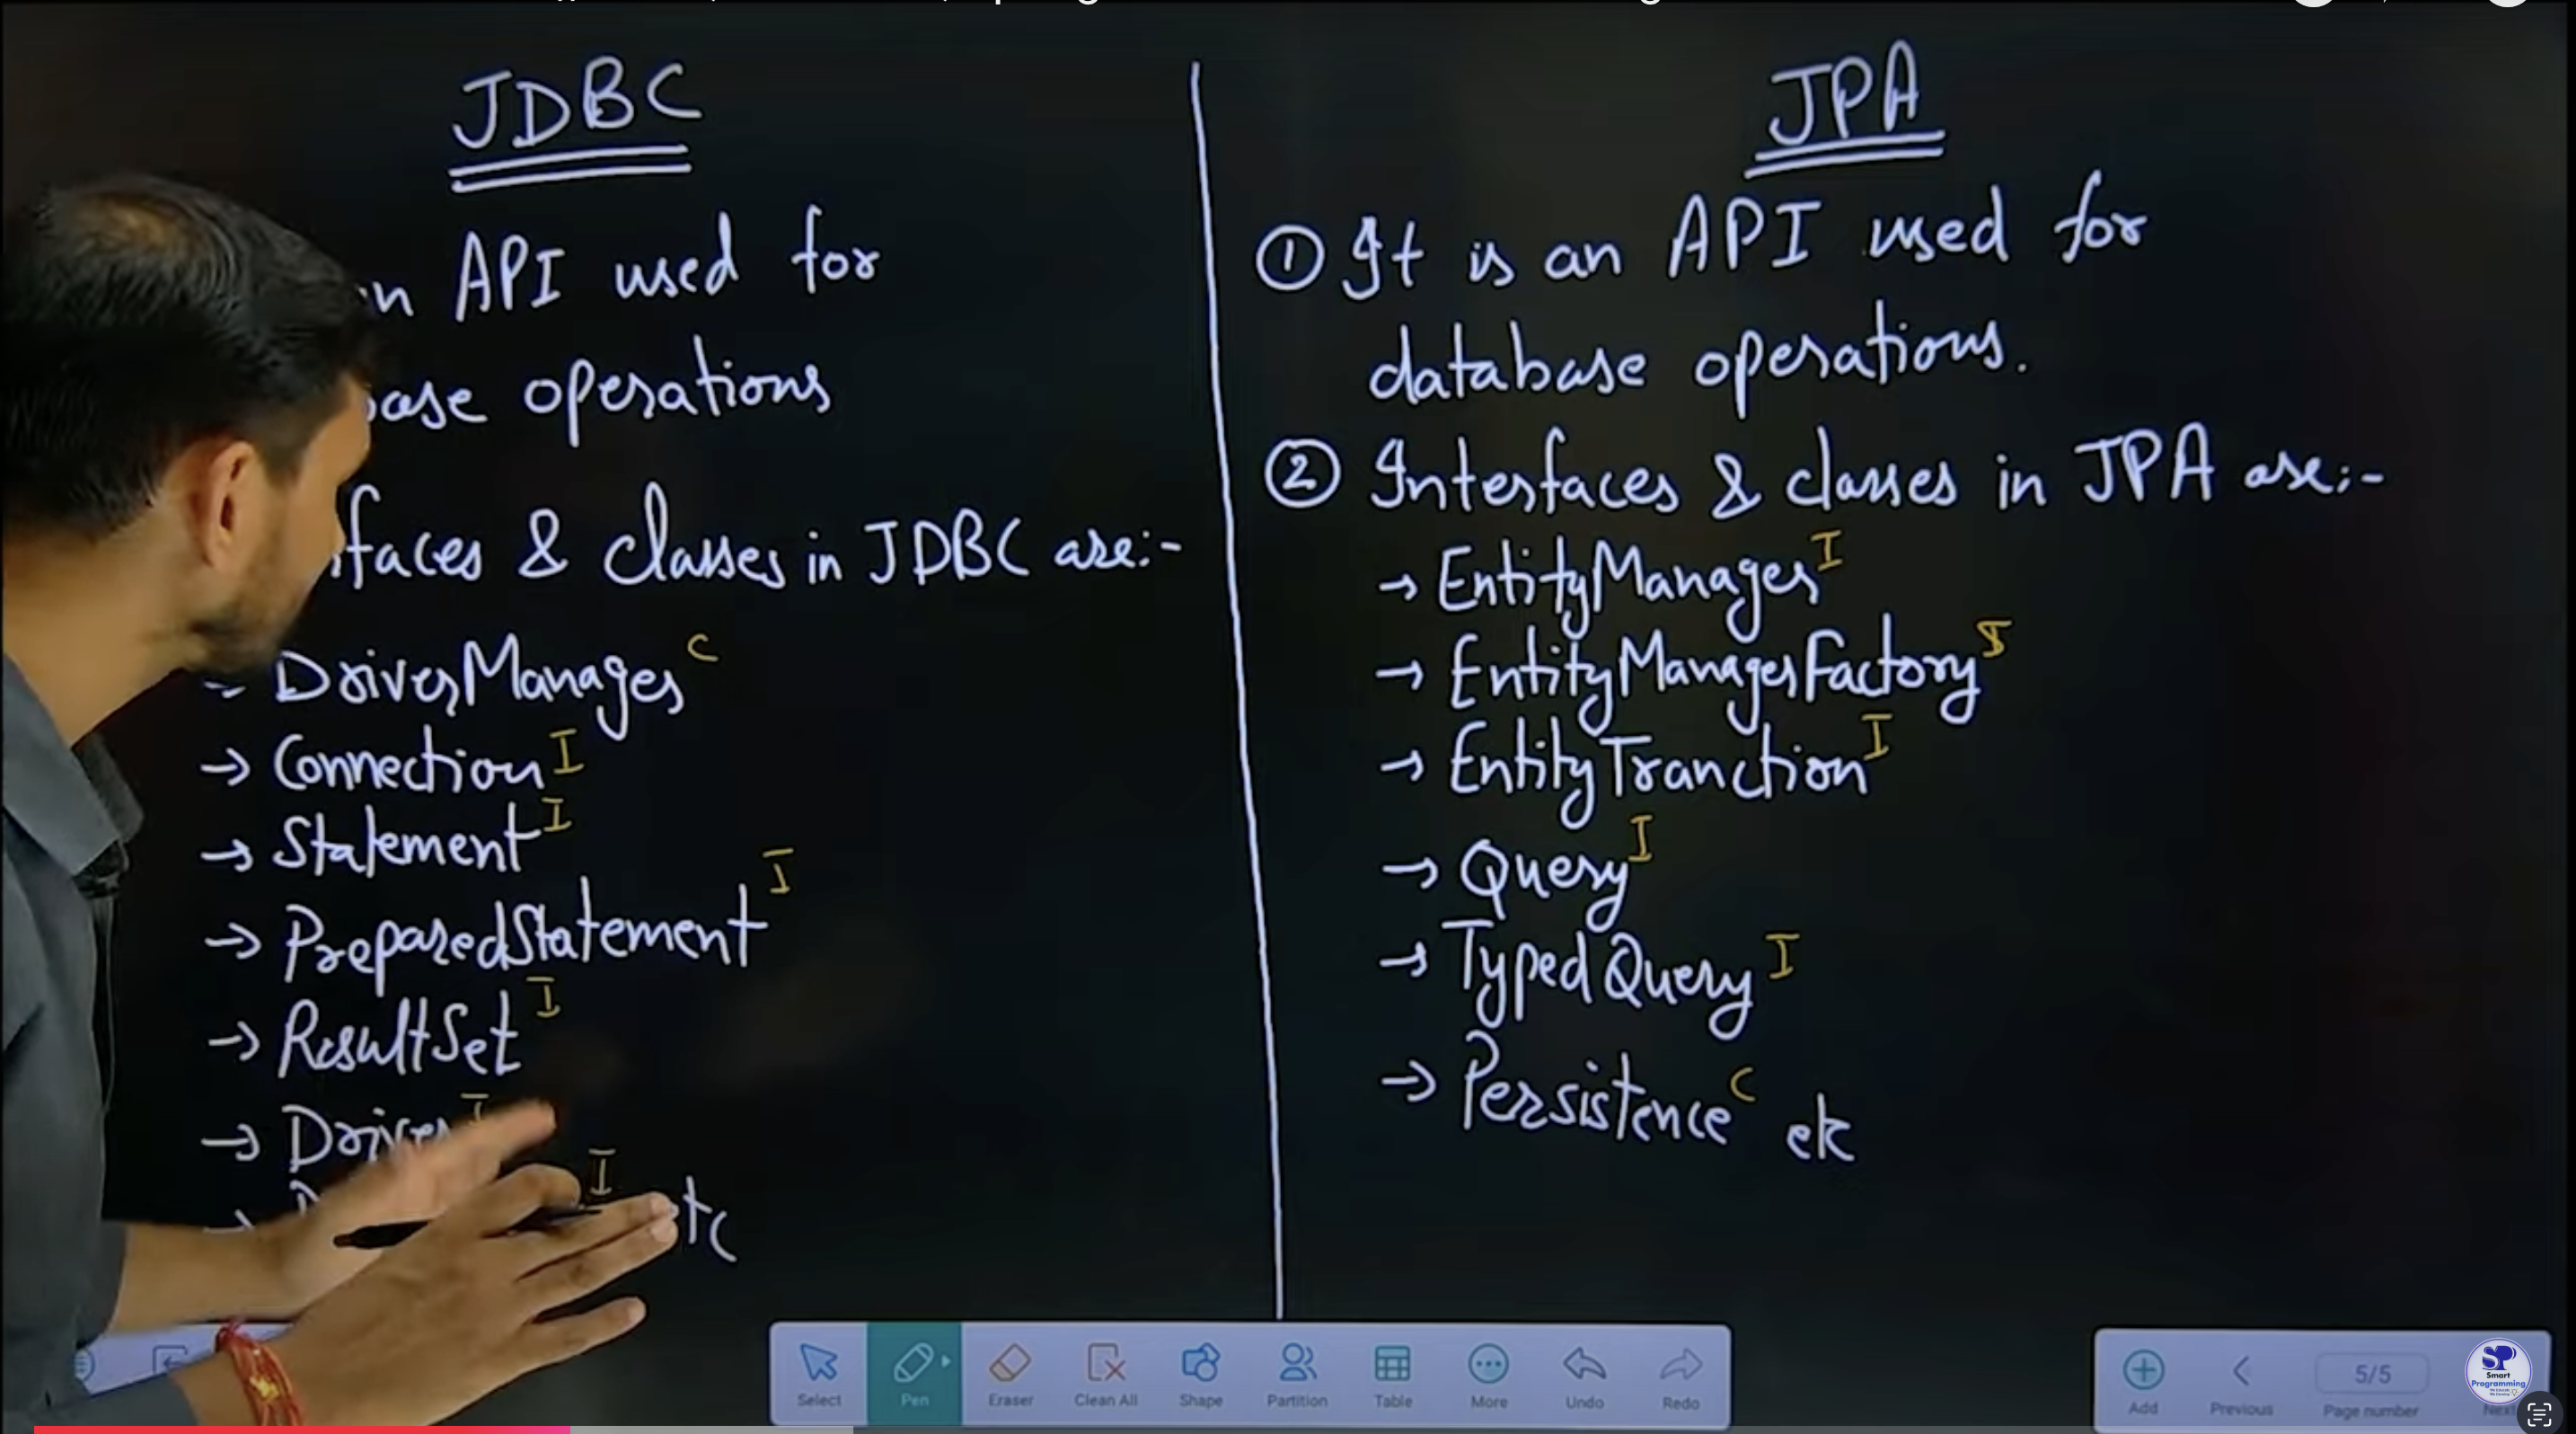 JDBC
API used for
operations
& classes in JDBC are:-
DriverManager C
→ Connection I
→ Statement I
→ PreparedStatement I
→ ResultSet I
→ Driver I
I
JPA
① It is an API used for
database operations.
② Interfaces & classes in JPA are:-
→ EntityManager I
→ EntityManagerFactory I
→ EntityTranction I
→ Query I
→ TypedQuery I
→ Persistence C etc
Select Pen Eraser Clean All Shape Partition Table More Undo Redo
Add Previous 5/5 Page number
SP
Smart
Programming